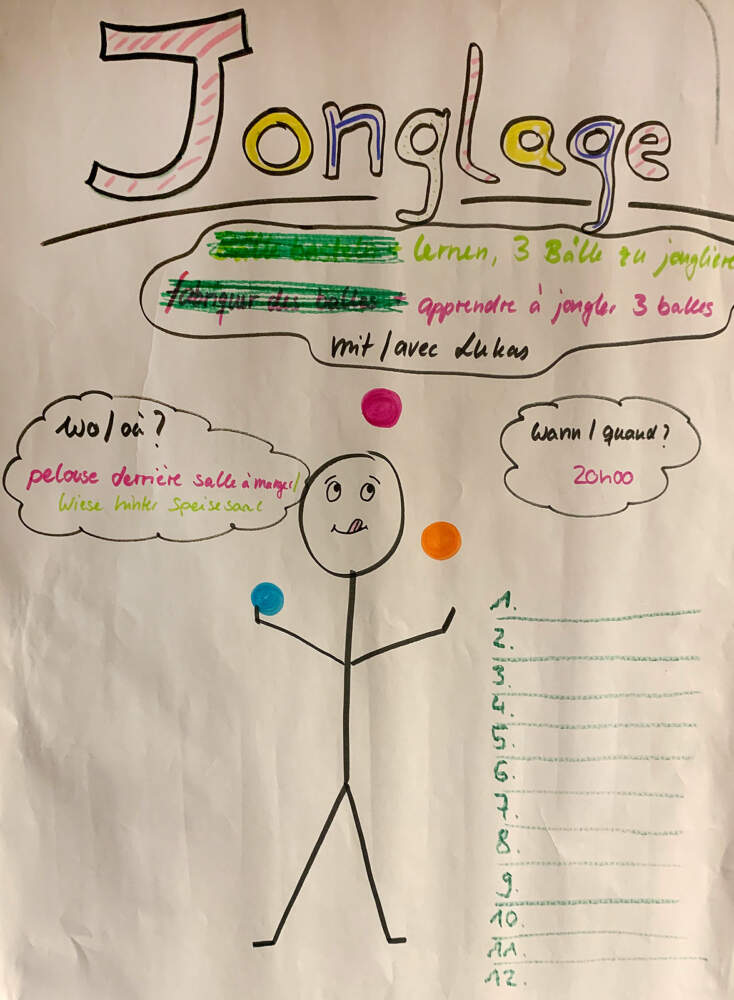 Jonglage
lernen, 3 Bälle zu jongliere
fabriquer des balles - apprendre à jongler 3 balles
mit / avec Lukas
wo / où ?
pelouse derrière salle à manger /
Wiese hinter Speisesaal
Wann / quand ?
20h00
1.
2.
3.
4.
5.
6.
7.
8.
9.
10.
11.
12.